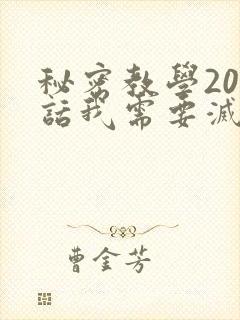 秘密教學20
話我需要滅
曹金芳